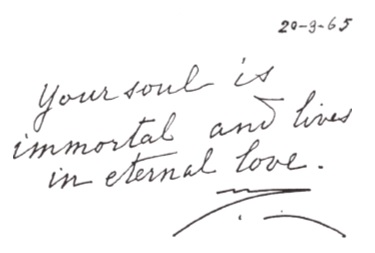 20-9-65
Your soul is
immortal and lives
in eternal love.